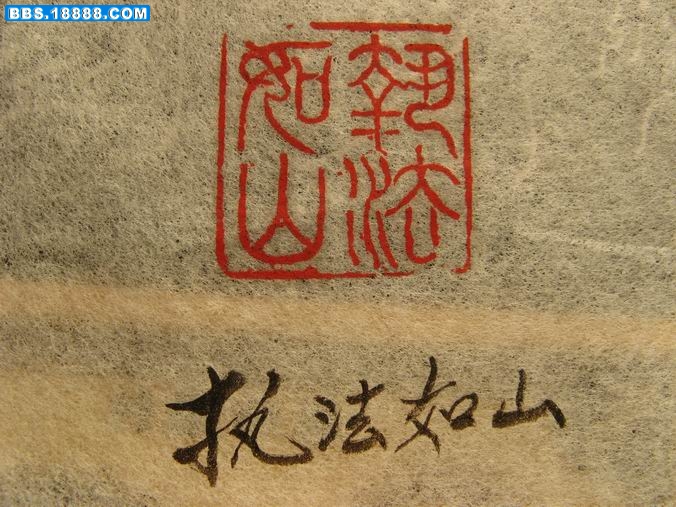 BBS.18888.COM
執法如山
执法如山